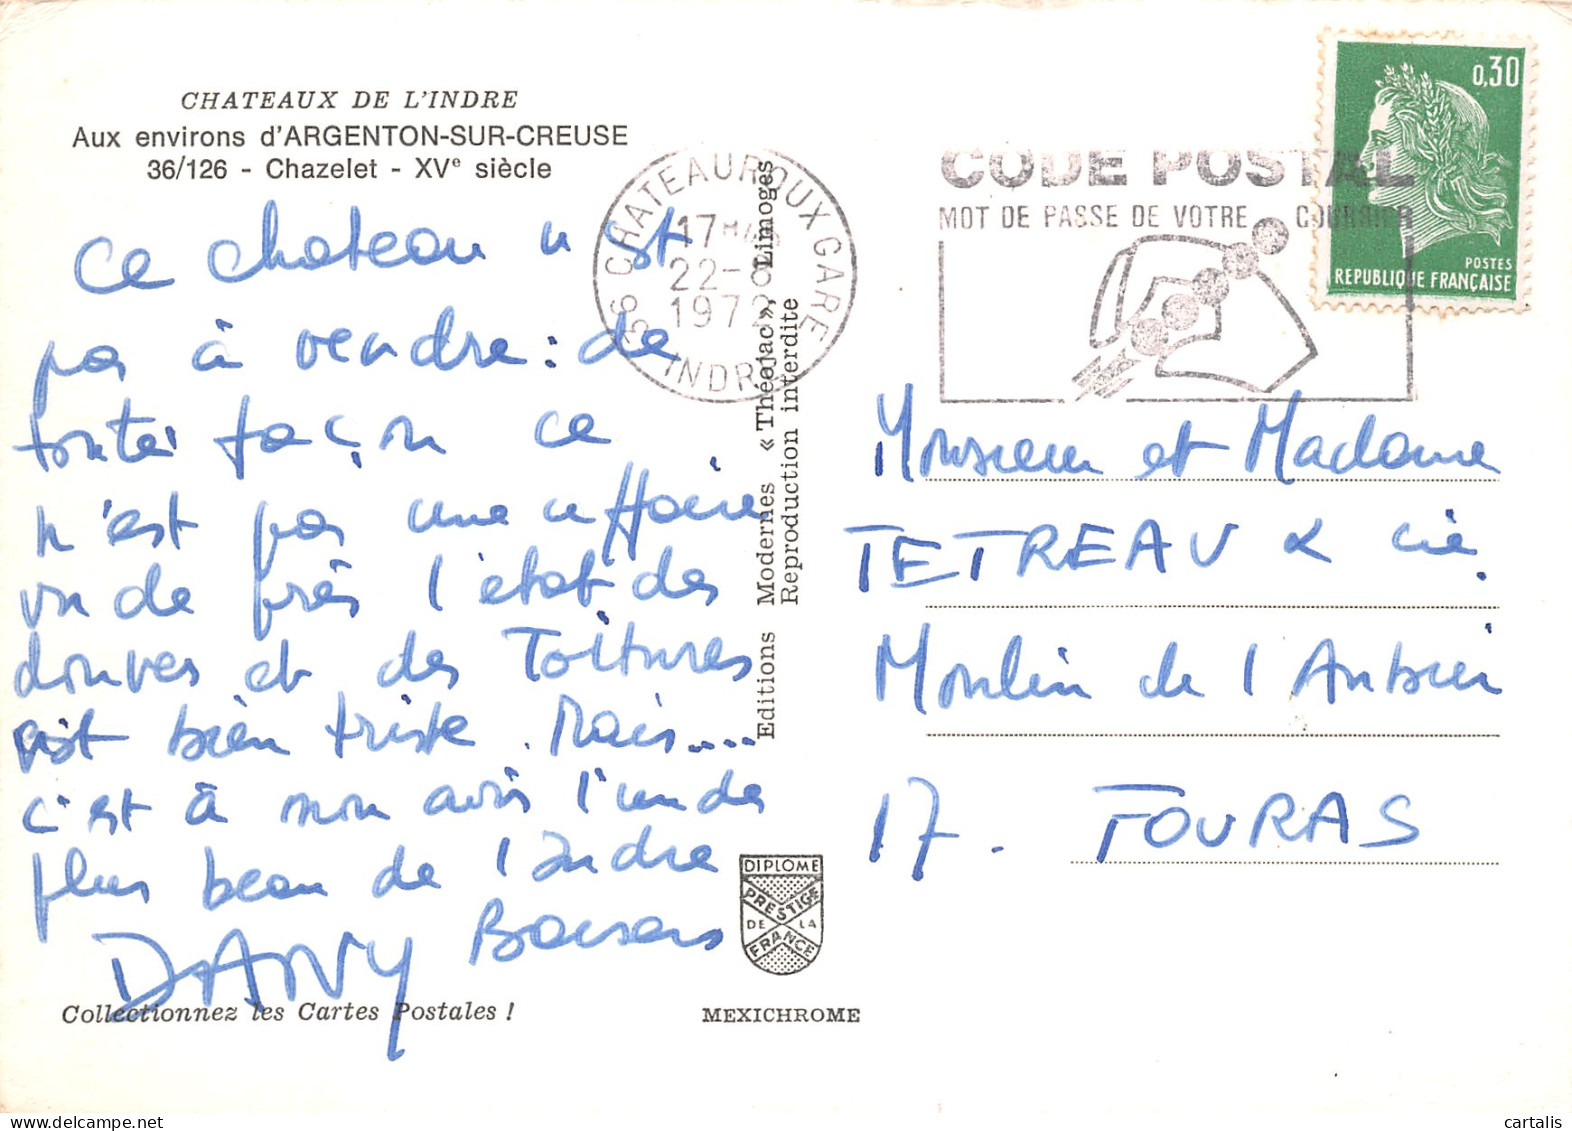 CHATEAUX DE L'INDRE
Aux environs d'ARGENTON-SUR-CREUSE
36/126 - Chazelet - XVe siècle
Ce chateau n'est
pas à vendre : de
toute façon ce
n'est pas une affaire
vu de près l'état des
douves et des Toitures
est bien triste. Mais....
c'est à mon avis l'un des
plus beau de l'Indre
DANY Baisers
Collectionnez les Cartes Postales !
Editions Modernes « Théojac », Limoges
Reproduction interdite
DIPLOME
PRESTIGE
DE LA
FRANCE
MEXICHROME
36 CHATEAUROUX GARE
17H
22-8
1972
INDRE
CODE POSTAL
MOT DE PASSE DE VOTRE COURRIER
0,30
POSTES
REPUBLIQUE FRANÇAISE
Monsieur et Madame
TETREAU & cie.
Moulin de l'Aubier
17. FOURAS
cartalis